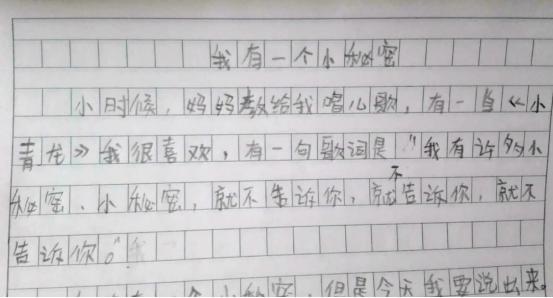 我有一个小秘密
小时候，妈妈教给我唱儿歌，有一首《小
青龙》我很喜欢，有一句歌词是"我有许多小
秘密、小秘密，就不告诉你，就不告诉你，就不
告诉你。"
个小秘密，但是今天我要说出来。